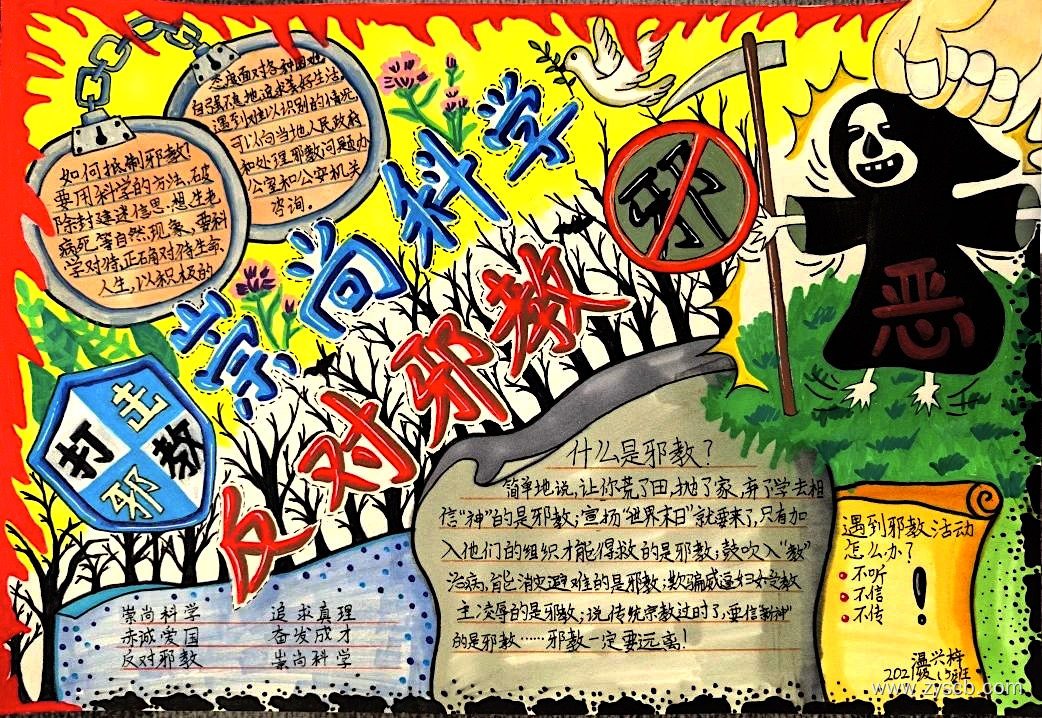 崇尚科学
反对邪教
如何抵制邪教?
要用科学的方法,破
除封建迷信思想,生老
病死等自然现象、要科
学对待,正确对待生命、
人生,以积极的
态度面对各种困难
自强不息地追求美好生活。
遇到难以识别的情况
可以向当地人民政府
和处理邪教问题办
公室和公安机关
咨询。
邪
恶
打击
邪教
什么是邪教?
简单地说,让你荒了田,抛了家,弃了学去相
信“神”的是邪教;宣扬“世界末日”就要来了,只有加
入他们的组织才能得救的是邪教;鼓吹入“教”
治病,能消灾避难的是邪教;欺骗威逼妇女受教
主凌辱的是邪教;说传统宗教过时了,要信新“神”
的是邪教……邪教一定要远离!
崇尚科学 追求真理
赤诚爱国 奋发成才
反对邪教 崇尚科学
遇到邪教活动
怎么办?
不听
不信
不传
!
温兴梓
班
www.zyscb.com